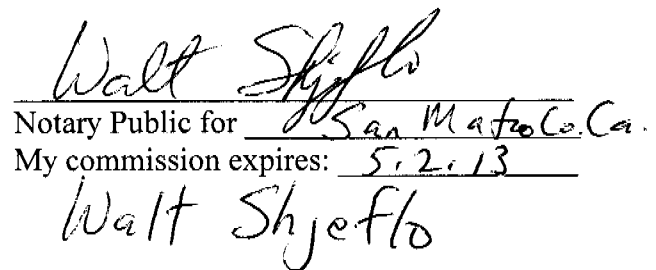 Walt Shjeflo
Notary Public for San Mateo Co. Ca.
My commission expires: 5.2.13
Walt Shjeflo